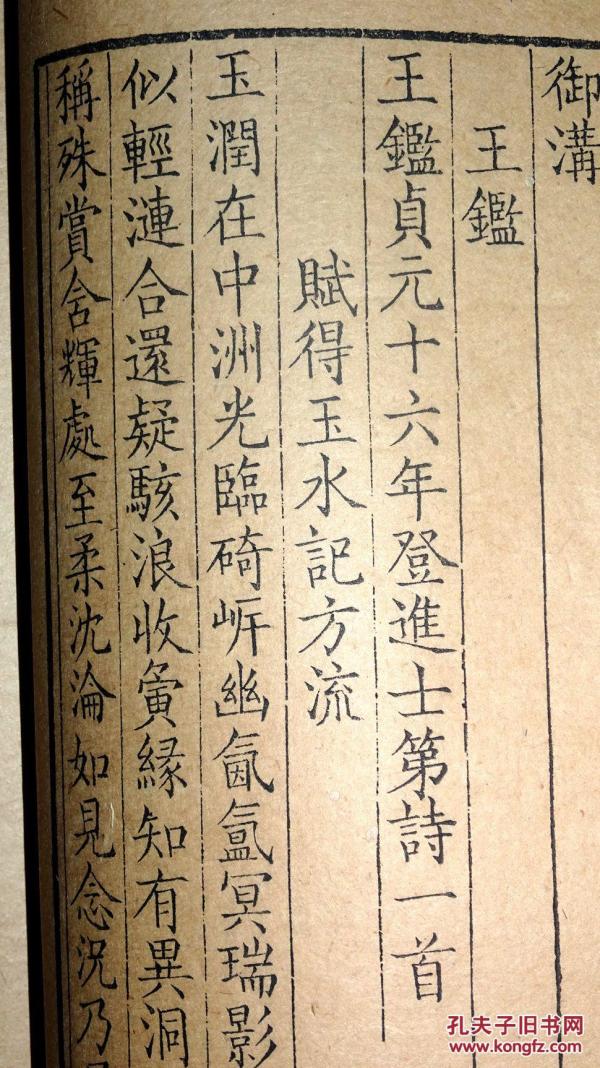 御溝
王鑑
王鑑貞元十六年登進士第詩一首
賦得玉水記方流
玉潤在中洲光臨碕岸幽氤氳冥瑞影
似輕漣合還疑駭浪收夤緣知有異洞
稱殊賞含輝處至柔沈淪如見念況乃
孔夫子旧书网
www.kongfz.com